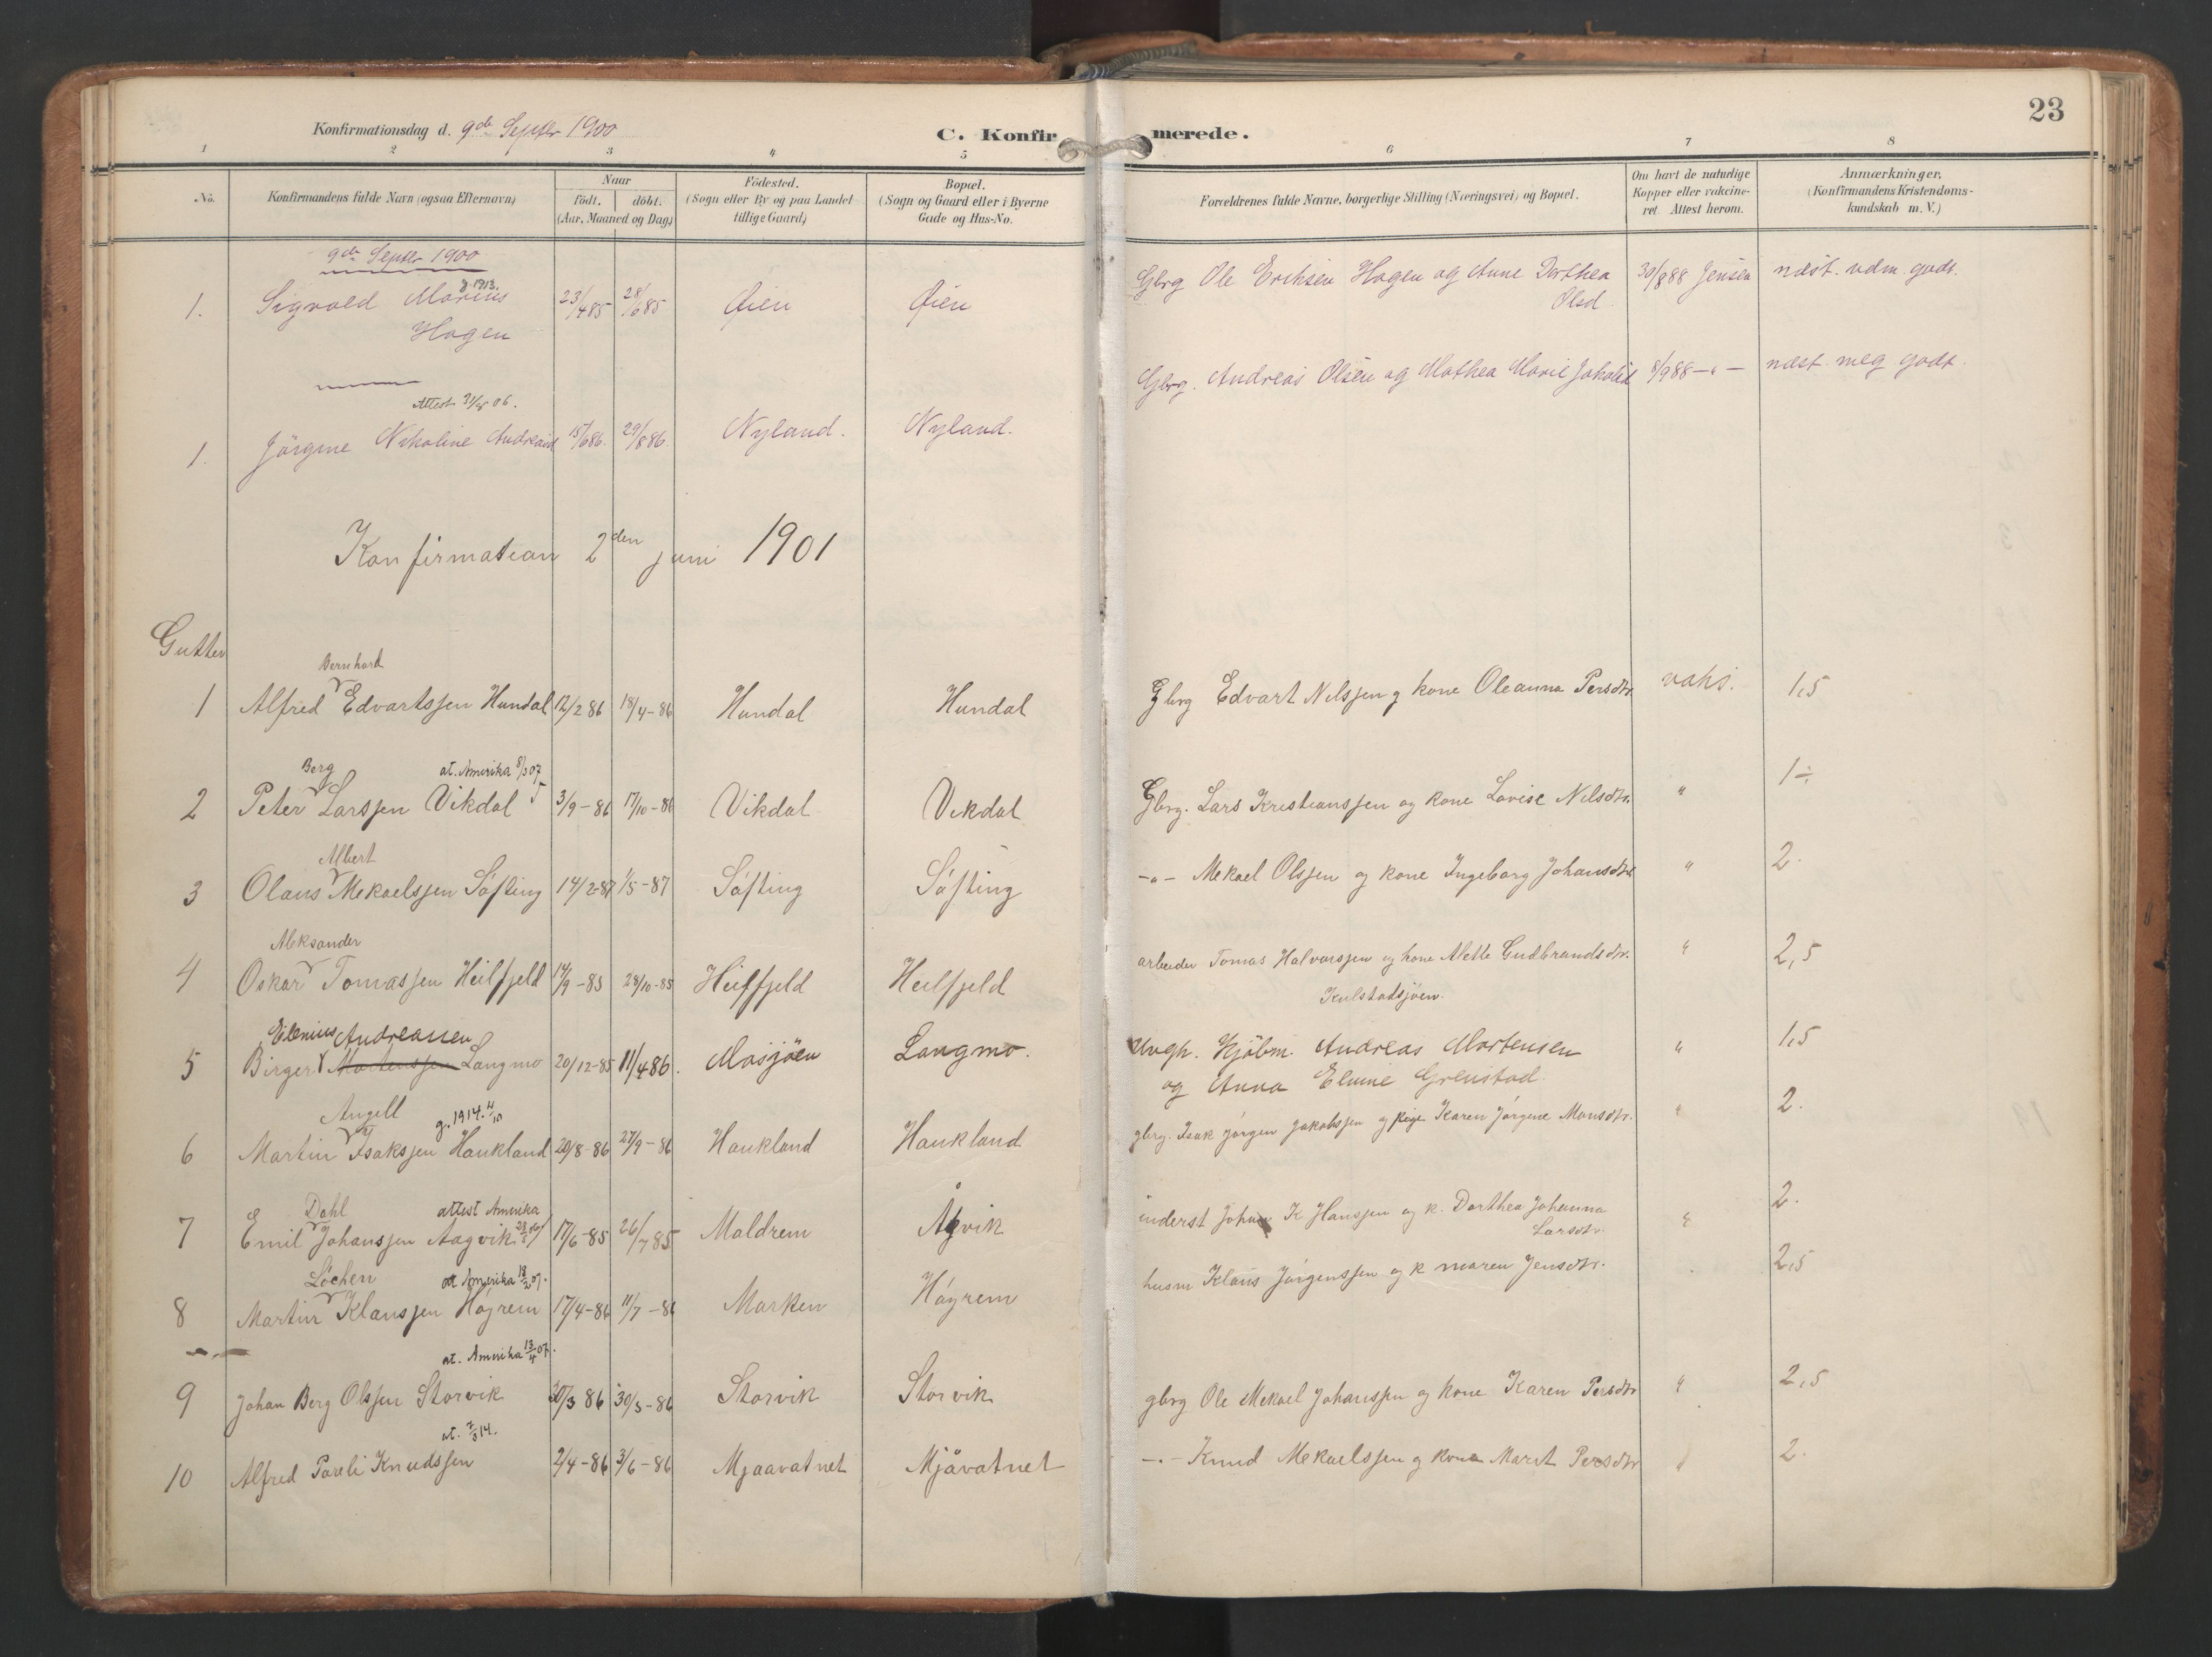 Konfirmationsdag d. 9de Septbr 1900
C. Konfirmerede.
23
1 2 3 4 5 6 7 8
No. Konfirmandens fulde Navn (ogsaa Efternavn) Naar födt. döbt. (Aar, Maaned og Dag) Födested. (Sogn eller By og paa Landet tillige Gaard) Bopæl. (Sogn og Gaard eller i Byerne Gade og Hus-No. Forældrenes fulde Navne, borgerlige Stilling (Næringsvei) og Bopæl. Om havt de naturlige Kopper eller vakcineret. Attest herom. Anmærkninger, (Konfirmandens Kristendomskundskab m. V.)
9de Septbr 1900
g 1913.
1. Sigvald Marius 23/4 85 28/6 85 Øien Øien Gbrg Ole Eriksen Hagen og Anne Dorthea 30/8 88 Jensen næst. udm. godt.
Hagen Olsd.
Attest 31/8 06.
1. Jörgine Nikoline Andreasd 15/6 86. 29/8 86. Nyland. Nyland. Gbrg. Andreas Olsen og Mathea Marie Jakobsd 8/9 88 -"- næst. meg godt.
Konfirmation 2den juni 1901
Gutter
Bernhard
1 Alfred Edvartssen Hundal 12/2 86 18/4-86 Hundal Hundal Gbrg Edvart Nilssen og kone Oleanna Persdtr. vaks. 1,5
Berg at. Amerika 8/3 07
2 Peter Larssen Vikdal 3/9-86 17/10-86 Vikdal Vikdal Gbrg. Lars Kristianssen og kone Lovise Nilsdtr. " 1÷
Albert
3 Olaus Mekaelssen Söfting 14/2-87 1/5-87 Söfting Söfting -"- Mekael Olssen og kone Ingeborg Johansdtr. " 2.
Aleksander
4 Oskar Tomassen Heilfjeld 14/9-85 28/10-85 Heilfjeld Heilfjeld arbeider Tomas Halvorssen og kone Alette Gudbrandsdtr. " 2,5
Kulstadsjöen.
Elenius Andreassen
5 Birger Mortenssen Langmo 20/12-85 11/4 86. Mosjöen Langmo. Ungk. Kjöbm. Andreas Mortensen " 1,5
og Anna Elmine Grenstad.
Angell g. 1914. 4/10
6 Martin Isakssen Haukland 20/8-86 27/9-86 Haukland Haukland gbrg. Isak Jörgen Jakobssen og pige Karen Jörgine Monsdtr. " 2.
Dahl attest Amerika
7 Emil Johanssen Aagvik 17/6-85 26/7 85 Maldrem Ågvik inderst Johan K Hanssen og k. Dorthea Johanna " 2.
Larsdtr.
Löchen at Amerika 18/2 07.
8 Martin Klaussen Höjrem 17/4-86 11/7-86 Marken Höyrem husm Klaus Jörgenssen og k maren Jensdtr. 2,5
at. Amerika 13/4 07.
9 Johan Berg Olssen Storvik 20/3 86 30/5-86 Storvik Storvik gbrg Ole Mekael Johanssen og kone Karen Persdtr " 2,5
at. 7/3 14.
10 Alfred Pareli Knudssen 2/4-86 3/6-86 Mjaavatnet Mjåvatnet -"- Knud Mekaelssen og kone Marit Persdtr " 2.